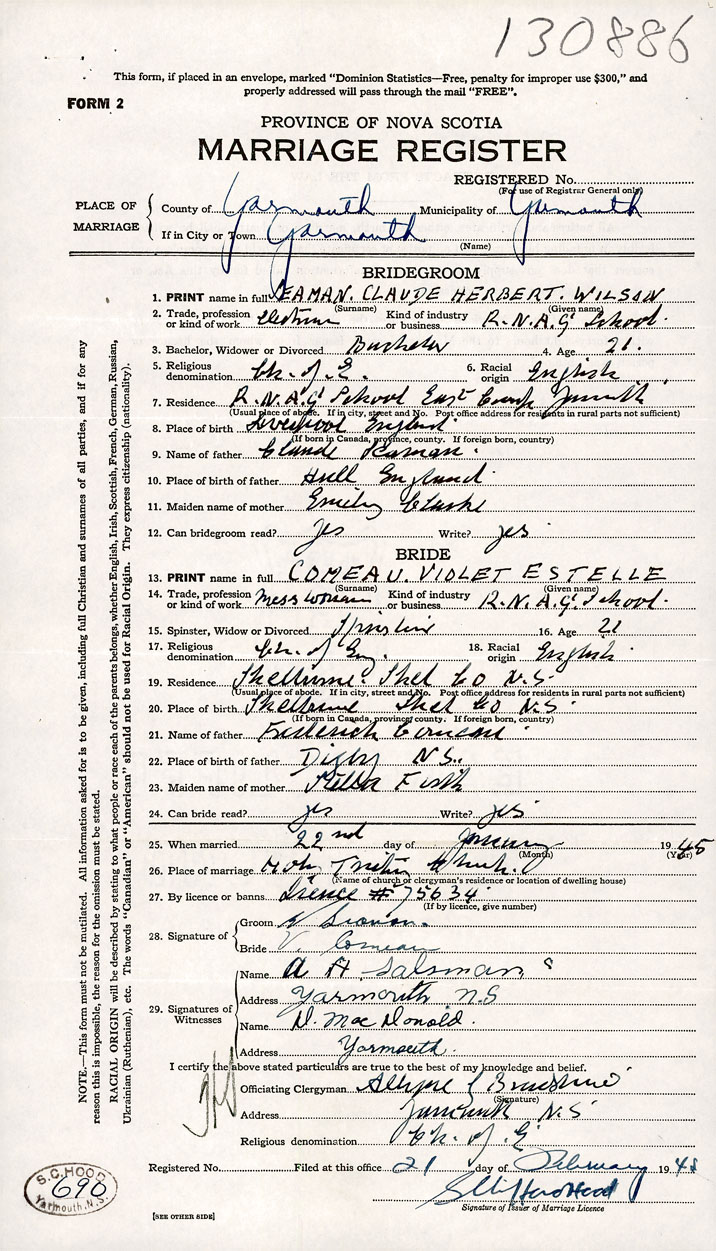 130886
This form, if placed in an envelope, marked "Dominion Statistics—Free, penalty for improper use $300," and
properly addressed will pass through the mail "FREE".
FORM 2
PROVINCE OF NOVA SCOTIA
MARRIAGE REGISTER
REGISTERED No.
(For use of Registrar General only)
PLACE OF MARRIAGE
County of Yarmouth Municipality of Yarmouth
If in City or Town Yarmouth
(Name)
BRIDEGROOM
1. PRINT name in full SEAMAN. CLAUDE HERBERT. WILSON
(Surname) (Given name)
2. Trade, profession or kind of work Kind of industry or business R.N.A.G. School.
3. Bachelor, Widower or Divorced Bachelor 4. Age 21.
5. Religious denomination Ch. of E. 6. Racial origin English
7. Residence R.N.A.G School East Camp Yarmouth
(Usual place of abode. If in city, street and No. Post office address for residents in rural parts not sufficient)
8. Place of birth Liverpool England
(If born in Canada, province, county. If foreign born, country)
9. Name of father Claude Seaman.
10. Place of birth of father Hull England
11. Maiden name of mother Emily Clarke
12. Can bridegroom read? yes Write? yes
BRIDE
13. PRINT name in full COMEAU. VIOLET ESTELLE
(Surname) (Given name)
14. Trade, profession or kind of work Mess Woman Kind of industry or business R.N.A.G. School.
15. Spinster, Widow or Divorced Spinster 16. Age 21
17. Religious denomination Ch. of Eng. 18. Racial origin English
19. Residence Shelburne Shel Co N.S
(Usual place of abode. If in city, street and No. Post office address for residents in rural parts not sufficient)
20. Place of birth Shelburne Shel Co N.S
(If born in Canada, province, county. If foreign born, country)
21. Name of father Frederick Comeau
22. Place of birth of father Digby N.S.
23. Maiden name of mother Firth
24. Can bride read? yes Write? yes
25. When married 22nd day of January 1945
(Month) (Year)
26. Place of marriage Holy Trinity Church.
(Name of church or clergyman's residence or location of dwelling house)
27. By licence or banns License # 75634
(If by licence, give number)
28. Signature of
Groom Seaman.
Bride V. Comeau
29. Signatures of Witnesses
Name A H Salsman
Address Yarmouth N.S
Name D. MacDonald.
Address Yarmouth.
I certify the above stated particulars are true to the best of my knowledge and belief.
Officiating Clergyman
(Signature)
Address Yarmouth N.S
Religious denomination Ch. of E
Registered No. Filed at this office 21 day of February 1945
Signature of Issuer of Marriage Licence
[SEE OTHER SIDE]
S. C. HOOD
690
Yarmouth, N.S.
NOTE.—This form must not be mutilated. All information asked for is to be given, including full Christian and surnames of all parties, and if for any
reason this is impossible, the reason for the omission must be stated.
RACIAL ORIGIN will be described by stating to what people or race each of the parents belongs, whether English, Irish, Scottish, French, German, Russian,
Ukrainian (Ruthenian), etc. The words "Canadian" or "American" should not be used for Racial Origin. They express citizenship (nationality).